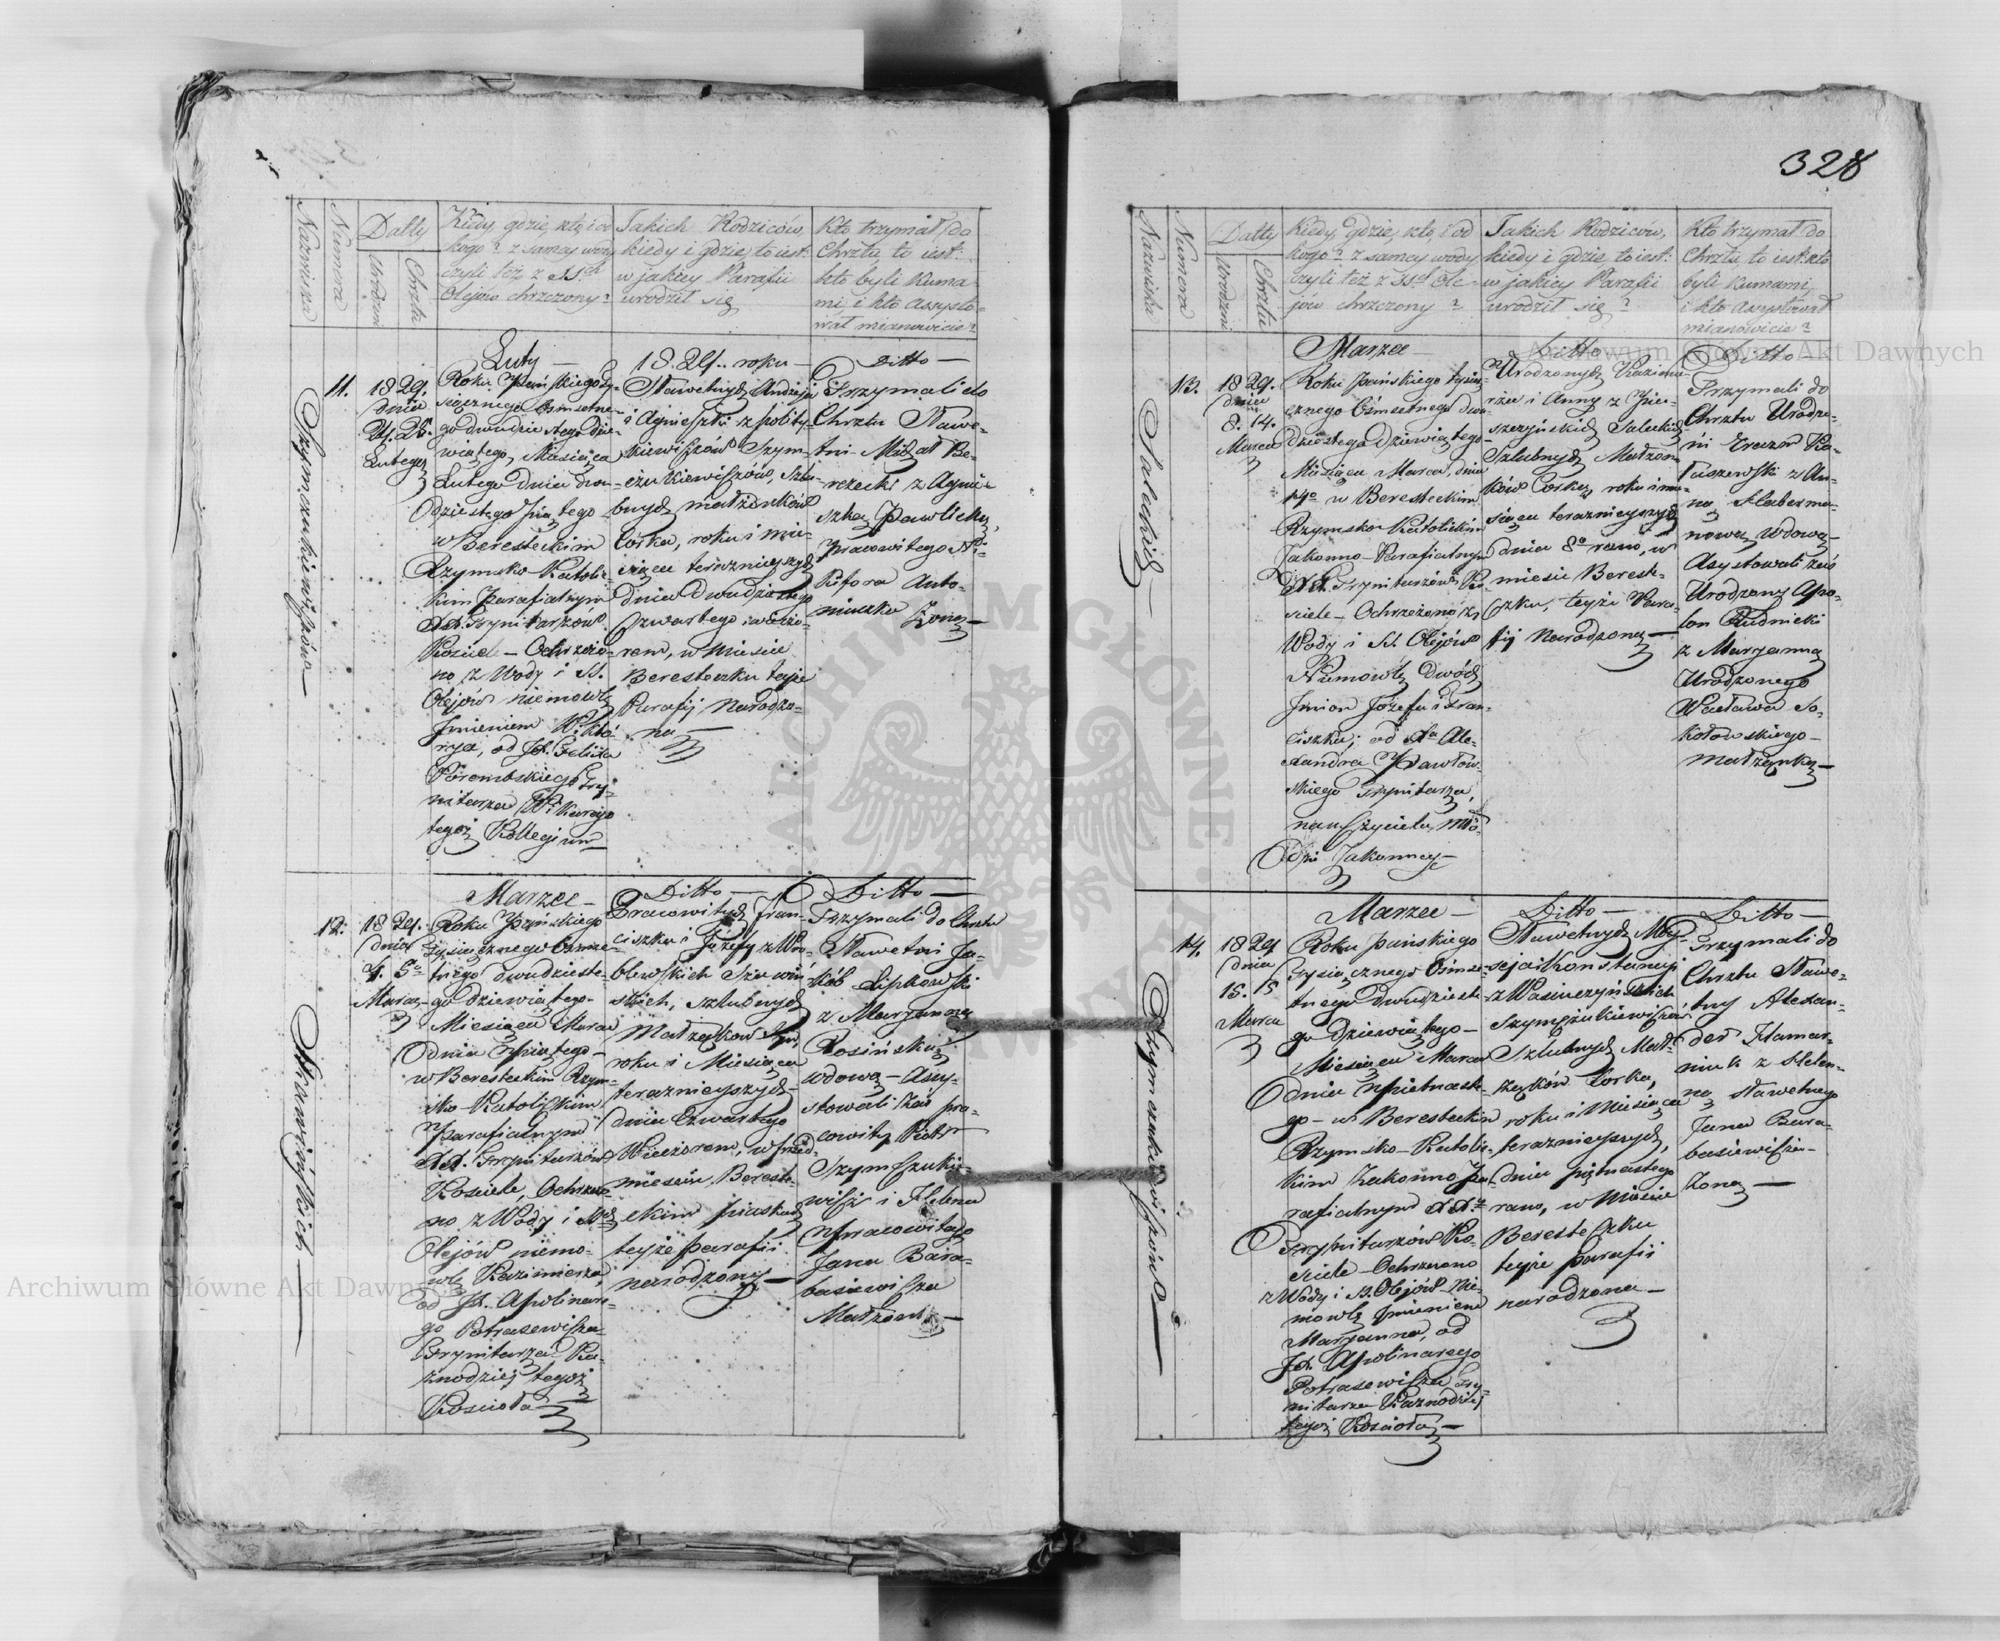 328
Nazwiska
Numera
Datty
Urodzeń
Chrztu
Kiedy, gdzie, kto, i od
kogo? z samey wody
czyli też z SSch
Olejow chrzczony?
Jakich Rodziców,
kiedy i gdzie, to iest:
w jakiey Parafii
urodził się
Kto trzymał do
Chrztu, to iest:
kto byli Kuma-
mi, i kto Assysto-
wał mianowicie?
Szymczukiewiczów
11.
1829.
dnia
24. 25.
Lutego
Luty
Roku Pańskiego Ty-
siącznego Ośmsetne-
go dwudziestego Dzie-
wiątego, Miesiąca
Lutego dnia dwu-
dziestego Piątego
w Beresteckim
Rzymsko-Katolic-
kim Parafialnym
XX. Trynitarzów
Kościele – Ochrzczo-
no z Wody i SS.
Olejów niemowlę
Imieniem Wikto-
rya, od JX. Felixa
Porembskiego Try-
nitarza Wikarego
tegoż Kollegium
1829. roku
Sławetnych Andrzeja
i Agnieszki z
Szym-
czukiewiczów, Szlu-
bnych małżonków
Córka, roku i mie-
siąca teraznieyszych
dnia Dwudziestego
Czwartego wieczo-
rem, w mieście
Beresteczku teyże
Parafij Narodzo-
na
Ditto
Trzymali do
Chrztu Sławe-
tni Michał Be-
rezecki z Agnie-
szką Pawlicką,
Pracowitego Ni-
kifora Anto-
niuka Żoną
Strawińskich
12.
1829.
dnia
4. 5o
Marca
Marzec
Roku Pańskiego
Tysiącznego Ośmse-
tnego dwudzieste-
go dziewiątego
Miesiąca Marca
dnia Piątego
w Beresteckim Rzym-
sko-Katolickim
Parafialnym
XX. Trynitarzów
Kościele, Ochrzczo-
no z Wody i SSch
Olejów niemo-
wlę Kazimierza,
od JX. Apolinare-
go Potrasewicza
Trynitarza Ka-
znodziej tegoż
Kościoła
Ditto
Pracowitych Fran-
ciszka i Józefy z Wró-
blewskich Strawiń-
skich, Szlubnych
Małżonków Syn,
roku i Miesiąca
teraznieyszych
dnia Czwartego
Wieczorem, w Przed-
mieściu Bereste-
ckim Piaskach
teyże parafii
narodzony
Ditto
Trzymali do Chrztu
Sławetni Ja-
kób Lipkowski
z Maryanną
Rosińską
wdową – Asy-
stowali zaś pra-
cowity Piotr
Szymczukie-
wicz i Helena
Pracowitego
Jana Bara-
basiewicza
Małżonka
Nazwiska
Numera
Datty
Urodzeń
Chrztu
Kiedy, gdzie, kto, i od
kogo? z samey wody
czyli też z SSch Ole-
jów chrzczony?
Jakich Rodziców,
kiedy i gdzie, to iest:
w jakiey Parafii
urodził się?
Kto trzymał do
Chrztu, to iest: kto
byli Kumami,
i kto Assystował
mianowicie?
Saleckich
13.
1829.
dnia
8. 14.
Marca
Marzec
Roku Pańskiego Tysią-
cznego Ośmsetnego dwu-
dziestego dziewiątego
Miesiąca Marca, dnia
14o w Beresteckim
Rzymsko Katolickim
Zakonno-Parafialnym
XX. Trynitarzów Ko-
ściele – Ochrzczono z
Wody i SS. Olejów
Niemowlę Dwóch
Imion Józefa i Fran-
ciszka; od Xa Ale-
xandra Pawłow-
skiego Trynitarza,
nauczyciela mło-
dzi Zakonney
Ditto
Urodzonych Kazimie-
rza i Anny z
Saleckich
Szlubnych Małżon-
ków Córka, roku i mie-
siąca teraznieyszych
dnia 8o rano, w
mieście Berest-
czku, teyże Para-
fij Narodzona
Ditto
Trzymali do
Chrztu Urodze-
ni Erazm Ka-
łuszewski z An-
ną Haberma-
nową Wdową
Asystowali zaś
Urodzony Apo-
lon Rudnicki
z Maryanną
Urodzonego
Wacława So-
kołowskiego
małżonką
Szymczukiewiczów
14.
1829
dnia
15. 15
Marca
Marzec
Roku Pańskiego
Tysiącznego Ośmse-
tnego Dwudzieste-
go dziewiątego
Miesiąca Marca
dnia Piętnaste-
go – w Beresteckim
Rzymsko-Katolic-
kim Zakonno Pa-
rafialnym XX.
Trynitarzów Ko-
ściele – Ochrzczono
z Wody i SS. Olejów Nie-
mowlę Imieniem
Maryanna, od
JX. Apolinarego
Potrasewicza Try-
nitarza Kaznodziej
tegoż Kościoła
Ditto
Sławetnych Moy-
sejai Konstancji
z Wasinczyńskich
Szymczukiewiczów
Szlubnych Mał-
żonków Córka,
roku i Miesiąca
teraznieyszych,
dnia piętnastego
rano, w Mieście
Beresteczku
teyże parafii
narodzona
Ditto
Trzymali do
Chrztu Sławe-
tny Alexan-
der Hamar-
niuk z Helen-
ną Sławetnego
Jana Bara-
basiewicza
Żoną
ARCHIWUM GŁÓWNE AKT
Archiwum Główne Akt Dawnych
Archiwum Główne Akt Dawnych